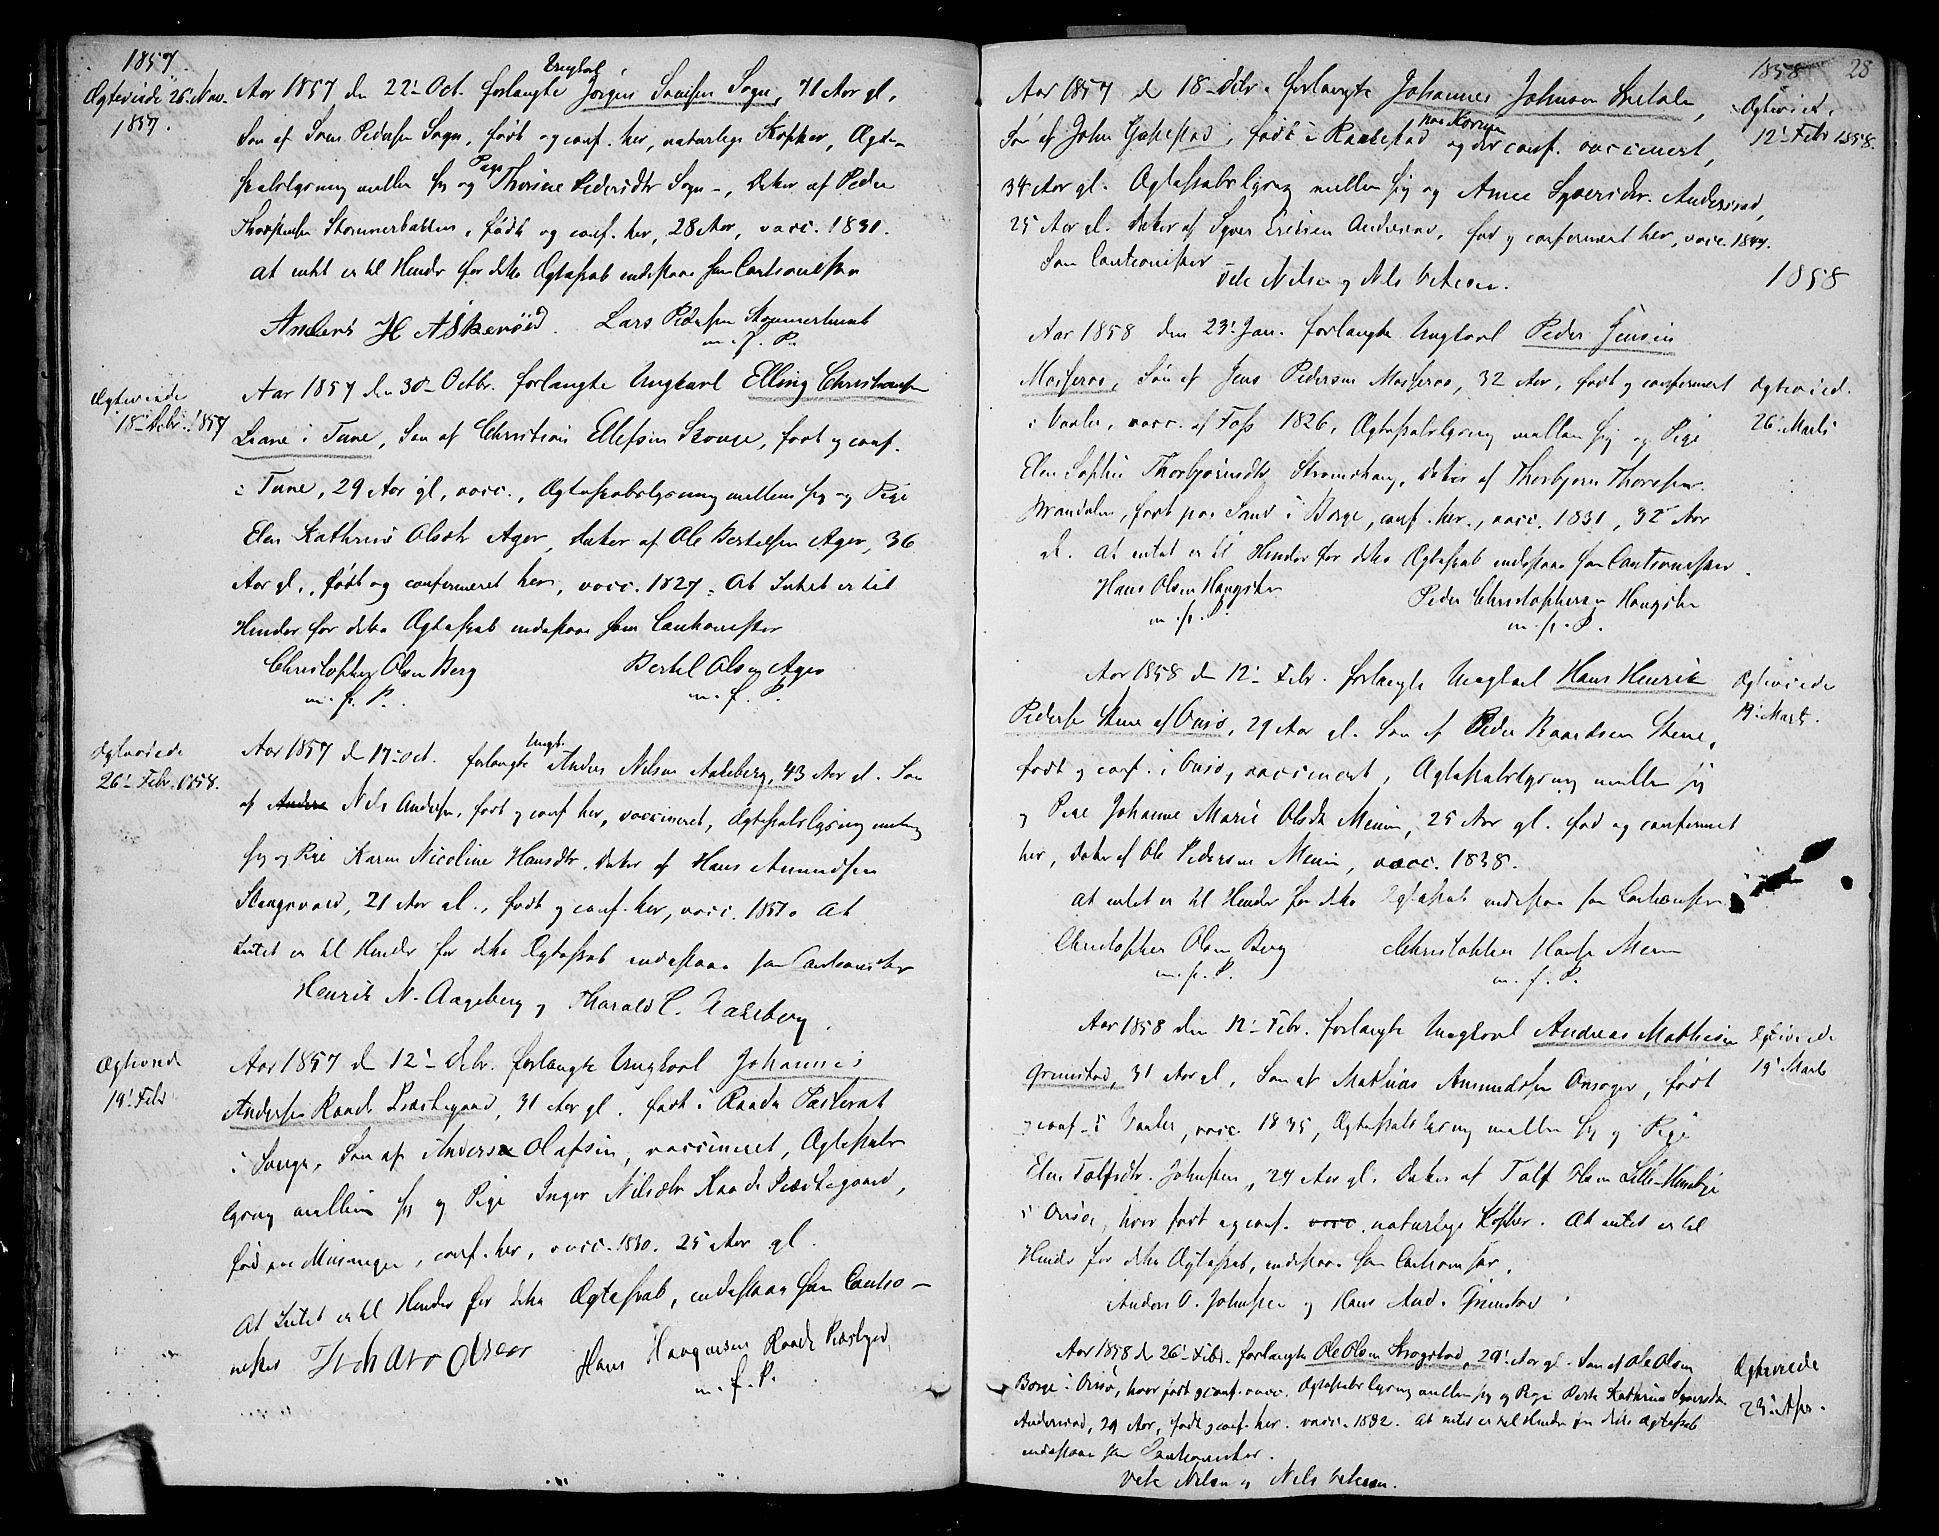 1857
Ægteviede 26 Nov.
1857.
Ungkal
Aar 1857 den 22' Oct. forlangte Jørgen Sørensen Sogn, 71 Aar gl,
Søn af Søren Pedersen Sogn, født og conf. her, naturlige Kopper, Ægte-
Pige
skabslysning mellem sig og Thorine Pedersdtr Sogn -, Datter af Peder
Thorstensen Stommerbakken, født og conf. her, 28 Aar, vacc. 1831.
At intet er til Hinder for dette Ægteskab indestaae som Cautionister
Anders H Askerøied. Lars Pedersen
m. f. P.
Ægteviede
18' Debr. 1857
Aar 1857 den 30- Octbr. forlangte Ungkarl Elling Christiansen
i Tune, Søn af Christian Ellefsen, født og conf.
i Tune, 29 Aar gl, vacc., Ægteskabslysning mellem sig og Pige
Elen Kathrine Olsdtr Ager, Datter af Ole Bertelsen Ager, 36
Aar gl., født og confirmeret her, vacc. 1827. At Intet er til
Hinder for dette Ægteskab indestaae som Cautionister
Christopher Olsen Berg Bertel Olsen Ager
m. f. P. m. f. P.
Ægteviede
26' Febr. 1858.
Ungk.
Aar 1857 d 17- Oct. forlangte Andres Nilsen Aaleberg, 43 Aar gl. Søn
af Anders Nils Andersen, født og conf her, vaccineret, Ægteskabslysning mellem
sig og Pige Karen Nicoline Hansdtr, Datter af Hans Amundsen
21 Aar gl., født og conf. her, vacc. At
Intet er til Hinder for dette Ægteskab indestaae som Cautionister
Henrik N. Aageberg og Tharald C. Aaleberg.
Ægteviede
19' Febr
Aar 1857 d 12' Debr. forlangte Ungkarl Johannes
Andersen Raade Præstegaard, 31 Aar gl. født i Raade Pastorat
i Søn af Anders Olafsen, vaccineret, Ægteskabs
lysning mellem sig og Pige Inger Nilsdtr Raade Præstegaard,
fød conf. her, vacc. 1830. 25 Aar gl.
At Intet er til Hinder for dette Ægteskab, indestaae som Cautio-
nister Olsen Hans Haagensen Raade Præstegrd
m. f. P.
1858 28
Aar 1857 d 18- Debr. forlangte Johannes Johnsen
Søn af John født i Rakkestad og der conf. vaccineret,
34 Aar gl. Ægteskabslysning mellem sig og Anne Syversdtr. Andersrød,
25 Aar gl. Datter af Syver Eriksen Andersrød, fød og confirmert her, vacc. 1847.
Som Cautionister
Nilsen og Nils
Ægteviet
12' Febr 1858.
1858
Aar 1858 den 23' Jan. forlangte Ungkarl Peder Jensen
Mosserød, Søn af Jens Pedersen Mosserød, 32 Aar, født og confirmert
i Vaaler, vacc. af Foss 1826, Ægteskabslysning mellem sig og Pige
Elen Sophie Thorbjørnsdtr Datter af Thorbjørn Thoresen
født paa Sand i Borge, conf. her., vacc. 1831, 32 Aar
gl. At intet er til Hinder for dette Ægteskab indestaae som Cautionister
Hans Olsen Haugsten Peder Christophersen Haugsten
m. f. P. m. f. P.
Ægteviet.
26' Marts
Aar 1858 d 12' Febr. forlangte Ungkarl Hans Henrik
Pedersen Stene af Onsø, 29 Aar gl. Søn af Peder Baardsen Stene,
født og conf. i Onsø, vaccineret, Ægteskabslysning mellem sig
og Pige Johanne Marie Olsdtr Menin, 25 Aar gl. fød og confirmert
her, Datter af Ole Pedersen Menin, vacc. 1838.
At intet er til Hinder for dette Ægteskab indestaae som Cautionister
Christopher Olsen Berg Christopher Hansen Menin
m. f. P. m. f. P.
Ægteviede
19' Marts.
Aar 1858 den 12' Febr. forlangte Ungkarl Andreas Mathisen
Grimstad, 31 Aar gl, Søn af Mathias Amundsen Onsager, født
og conf. i Vaaler, vacc. 1835, Ægteskabslysning mellem sig og Pige
Elen Tolfsdtr. Johnsten, 29 Aar gl. Datter af Tolf Olsen Lille-Huseby
i Onsø, hvor født og conf. vacc. naturlige Kopper. At intet er til
Hinder for dette Ægteskab, indestaae som Cautionister,
Anders O. Johnsten og Hans And. Grimstad
Ægteviede
19' Marts
Aar 1858 d 26' Febr. forlangte Ole Olsen Skogstad, 29' Aar gl. Søn af Ole Olsen
Borge i Onsø, hvor født og conf. vacc. Ægteskabslysning mellem sig og Pige Berte Kathrine Syversdtr
Andersrød, 29 Aar, født og conf. her. vacc. 1832. At intet er til Hinder for dette Ægteskab
indestaae som Cautionister.
Nilsen og Nils
Ægteviede
23' Apr.